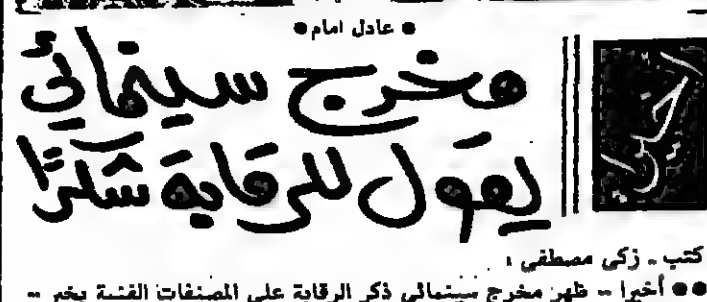 ● عادل امام ●
مخرج سينمائي
يقول للرقابة شكرًا
كتب ـ زكى مصطفى :
●● أخيرا .. ظهر مخرج سينمائى ذكر الرقابة على المصنفات الفنية بخير ..